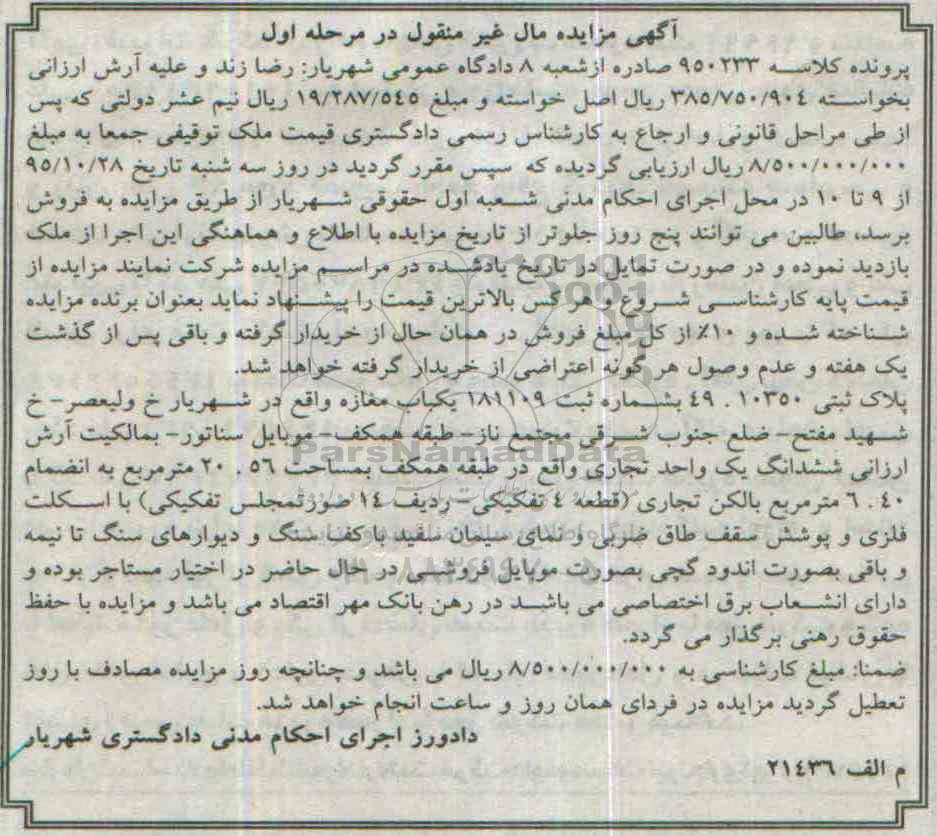 آگهی مزایده مال غیر منقول در مرحله اول
پرونده کلاسه ۹۵۰۲۳۳ صادره ازشعبه ۸ دادگاه عمومی شهریار: رضا زند و علیه آرش ارزانی
بخواسته ۳۸۵/۷۵۰/۹۰۴ ریال اصل خواسته و مبلغ ۱۹/۲۸۷/۵۴۵ ریال نیم عشر دولتی که پس
از طی مراحل قانونی و ارجاع به کارشناس رسمی دادگستری قیمت ملک توقیفی جمعا به مبلغ
۸/۵۰۰/۰۰۰/۰۰۰ ریال ارزیابی گردیده که سپس مقرر گردید در روز سه شنبه تاریخ ۹۵/۱۰/۲۸
از ۹ تا ۱۰ در محل اجرای احکام مدنی شعبه اول حقوقی شهریار از طریق مزایده به فروش
برسد، طالبین می توانند پنج روز جلوتر از تاریخ مزایده با اطلاع و هماهنگی این اجرا از ملک
بازدید نموده و در صورت تمایل در تاریخ یادشده در مراسم مزایده شرکت نمایند مزایده از
قیمت پایه کارشناسی شروع و هرکس بالاترین قیمت را پیشنهاد نماید بعنوان برنده مزایده
شناخته شده و ۱۰٪ از کل مبلغ فروش در همان حال از خریدار گرفته و باقی پس از گذشت
یک هفته و عدم وصول هر گونه اعتراضی از خریدار گرفته خواهد شد.
پلاک ثبتی ۱۰۳۵۰ . ۴۹ بشماره ثبت ۱۸۱۱۰۹ یکباب مغازه واقع در شهریار خ ولیعصر- خ
شهید مفتح- ضلع جنوب شرقی مجتمع ناز- طبقه همکف- موبایل سناتور- بمالکیت آرش
ارزانی ششدانگ یک واحد تجاری واقع در طبقه همکف بمساحت ۵۶ . ۲۰ مترمربع به انضمام
۴۰ . ۶ مترمربع بالکن تجاری (قطعه ٤ تفکیکی- ردیف ١٤ صورتمجلس تفکیکی) با اسکلت
فلزی و پوشش سقف طاق ضربی و نمای سیمان سفید با کف سنگ و دیوارهای سنگ تا نیمه
و باقی بصورت اندود گچی بصورت موبایل فروشی در حال حاضر در اختیار مستاجر بوده و
دارای انشعاب برق اختصاصی می باشد در رهن بانک مهر اقتصاد می باشد و مزایده با حفظ
حقوق رهنی برگذار می گردد.
ضمنا: مبلغ کارشناسی به ۸/۵۰۰/۰۰۰/۰۰۰ ریال می باشد و چنانچه روز مزایده مصادف با روز
تعطیل گردید مزایده در فردای همان روز و ساعت انجام خواهد شد.
دادورز اجرای احکام مدنی دادگستری شهریار
م الف ۲۱٤۳٦
ParsNamadData